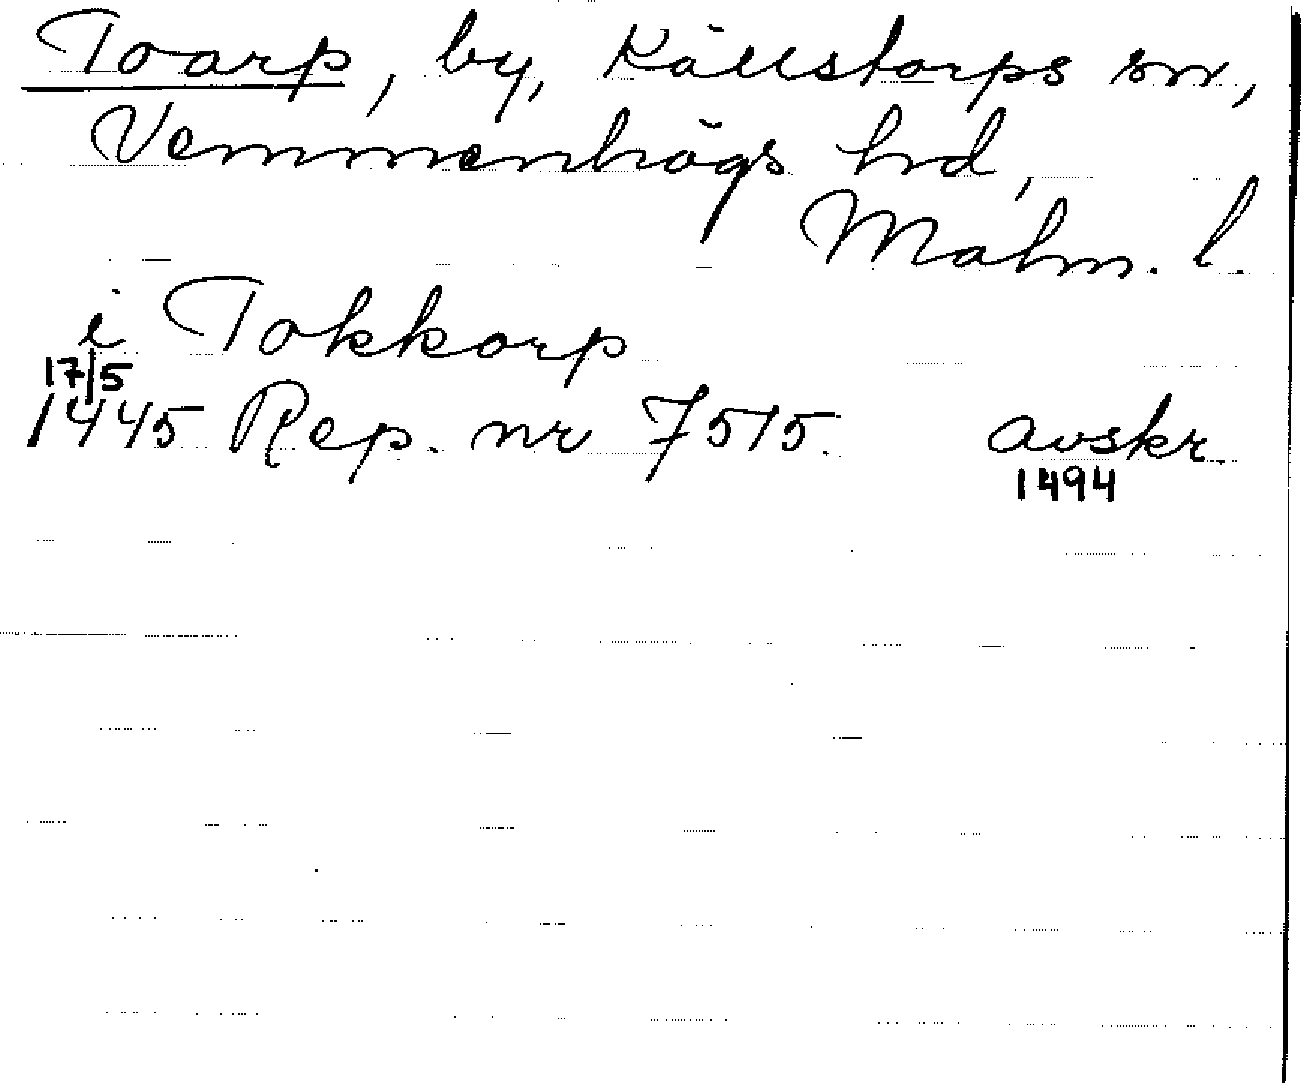 Toarp, by, Källstorps sn,
Vemmenhögs hd,
Malm. l.
i Tokkorp
17/5
1445 Rep. nr 7515. avskr.
1494